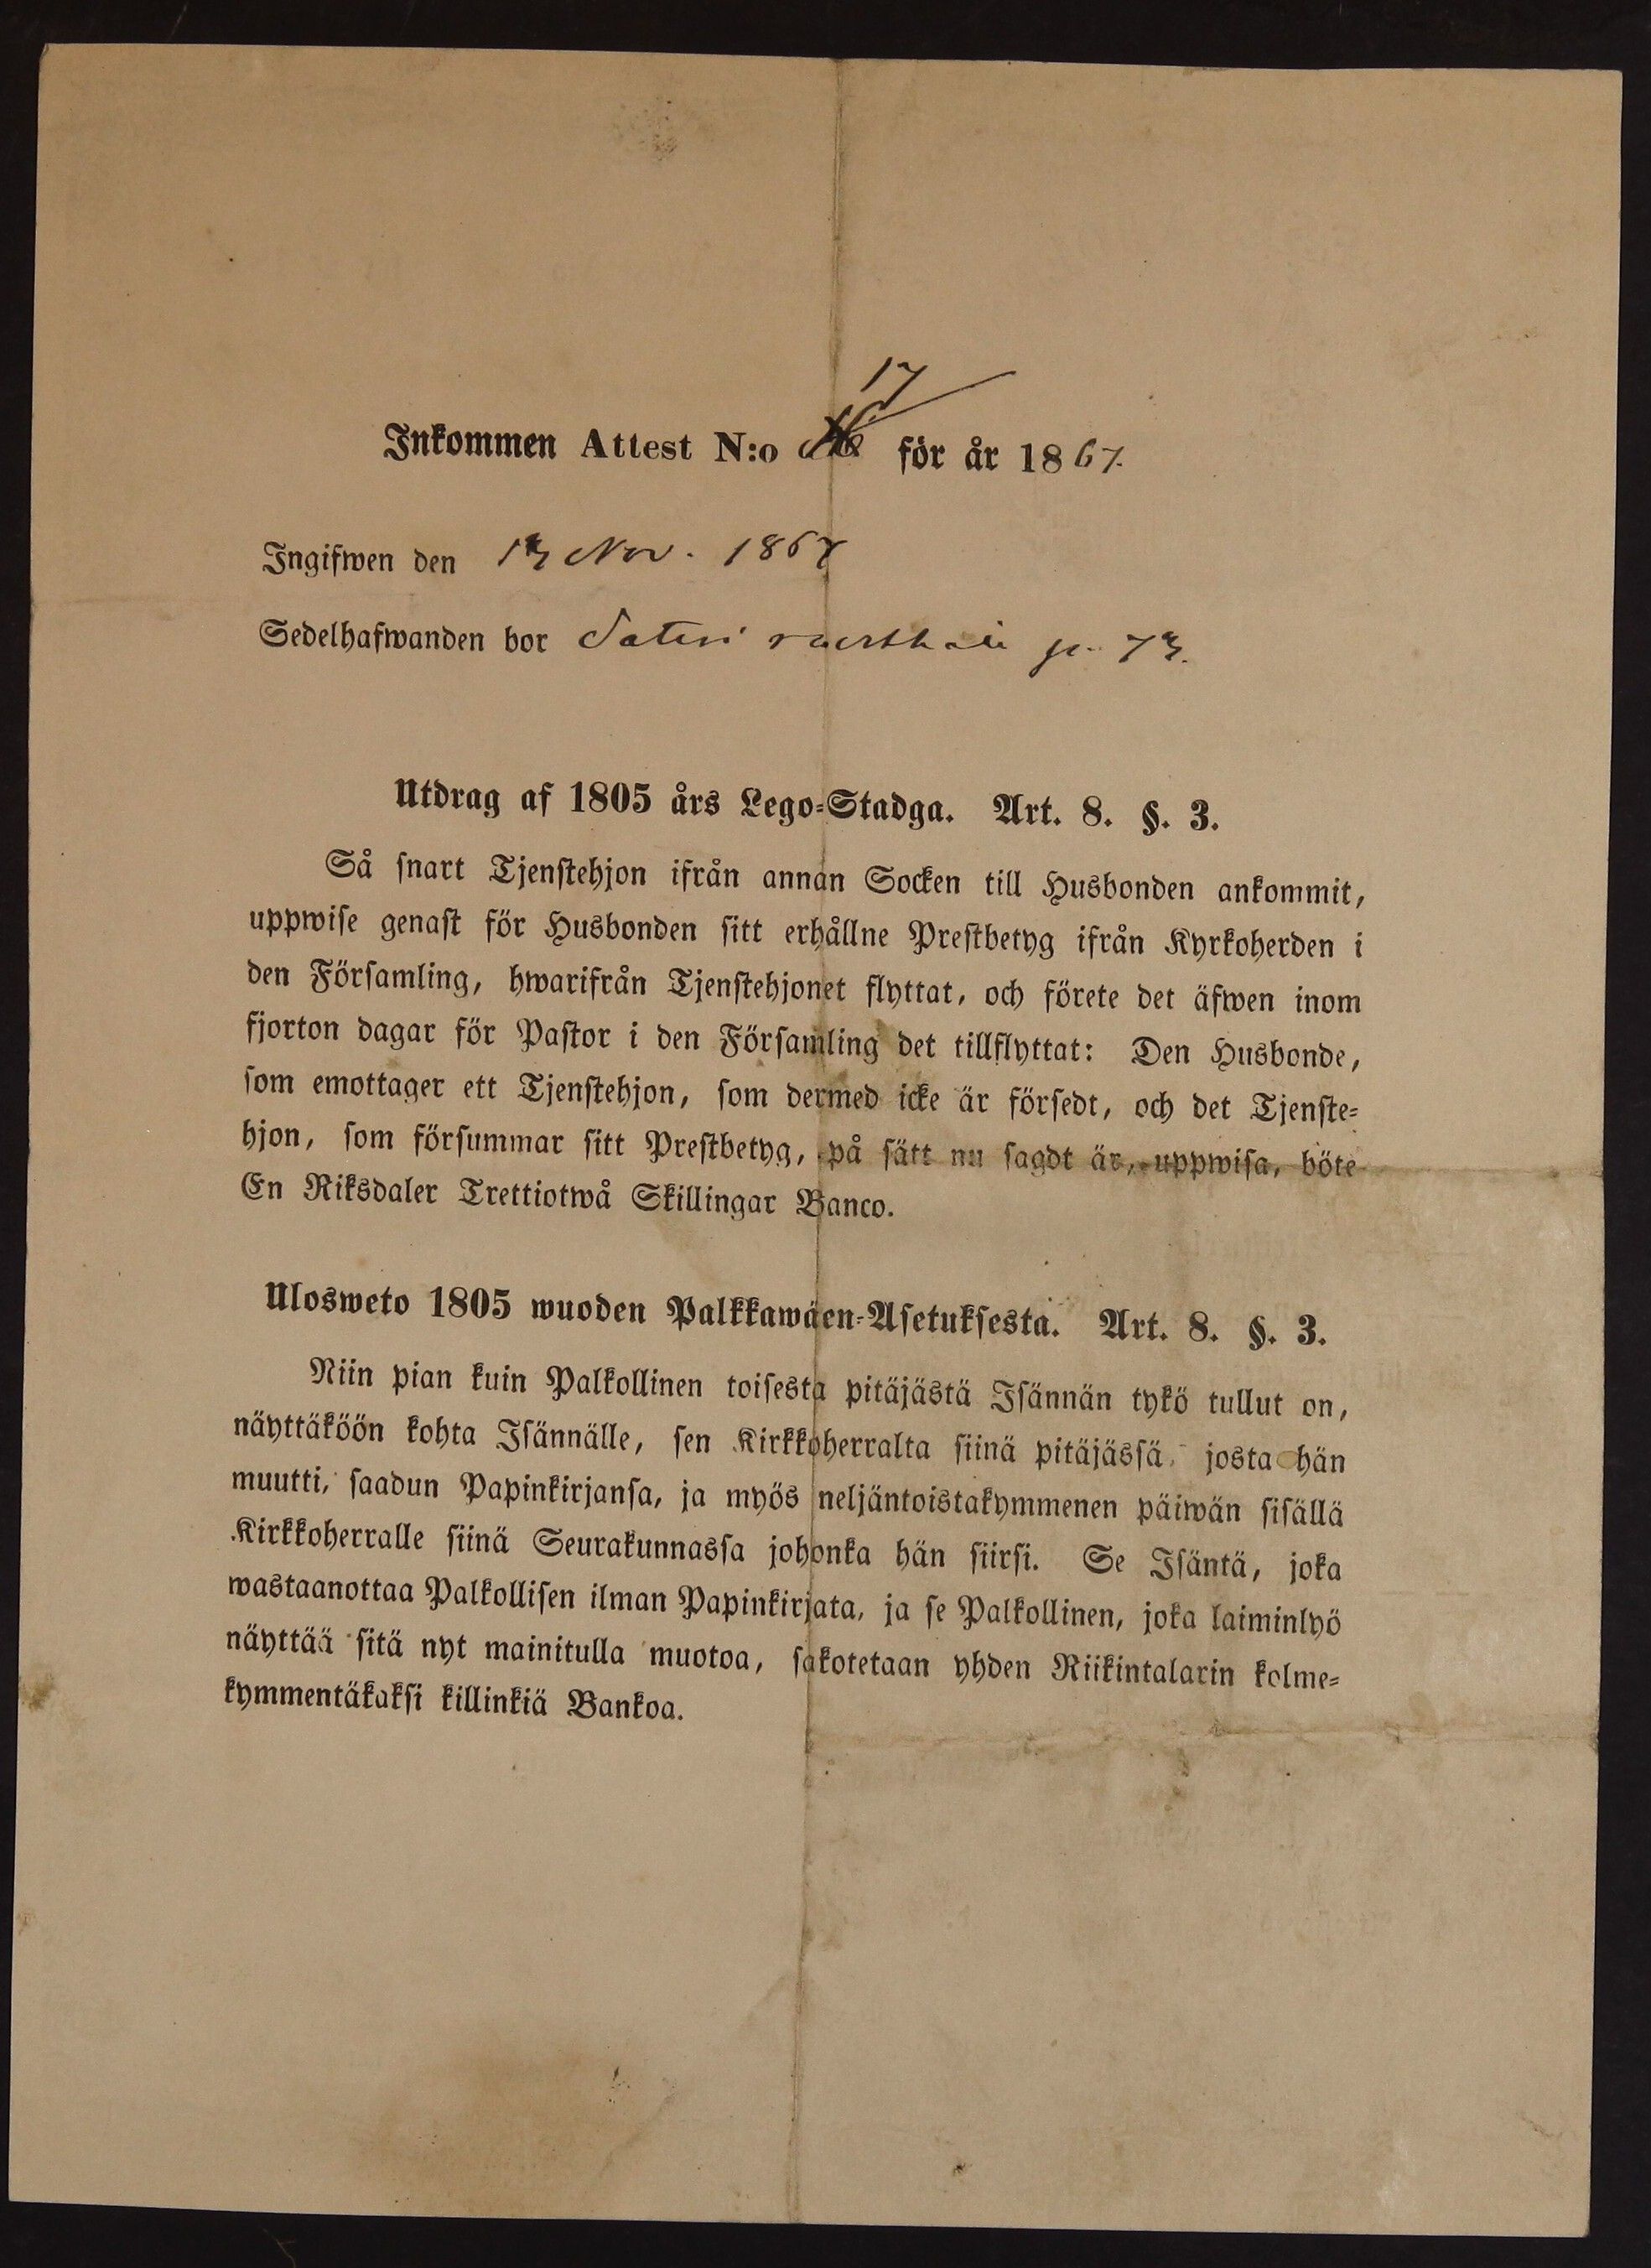 17
Inkommen Attest N:o för år 1867.
Ingifwen den 13 Nov. 1867
Sedelhafwanden bor Sateri p. 73.
Utdrag af 1805 års Lego-Stadga. Art. 8. §. 3.
Så snart Tjenstehjon ifrån annan Socken till Husbonden ankommit,
uppwise genast för Husbonden sitt erhållne Prestbetyg ifrån Kyrkoherden i
den Församling, hwarifrån Tjenstehjonet flyttat, och förete det äfwen inom
fjorton dagar för Pastor i den Församling det tillflyttat: Den Husbonde,
som emottager ett Tjenstehjon, som dermed icke är försedt, och det Tjenste-
hjon, som försummar sitt Prestbetyg, på sätt nu sagdt är, uppwisa, böte
En Riksdaler Trettiotwå Skillingar Banco.
Ulosweto 1805 wuoden Palkkawäen-Asetuksesta. Art. 8. §. 3.
Niin pian kuin Palkollinen toisesta pitäjästä Isännän tykö tullut on,
näyttäköön kohta Isännälle, sen Kirkkoherralta siinä pitäjässä, josta hän
muutti, saadun Papinkirjansa, ja myös neljäntoistakymmenen päiwän sisällä
Kirkkoherralle siinä Seurakunnassa johonka hän siirsi. Se Isäntä, joka
wastaanottaa Palkollisen ilman Papinkirjata, ja se Palkollinen, joka laiminlyö
näyttää sitä nyt mainitulla muotoa, sakotetaan yhden Riikintalarin kolme-
kymmentäkaksi killinkiä Bankoa.